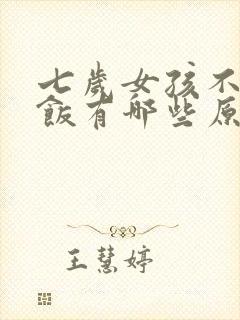 七歲女孩不
飯有哪些原
王慧婷